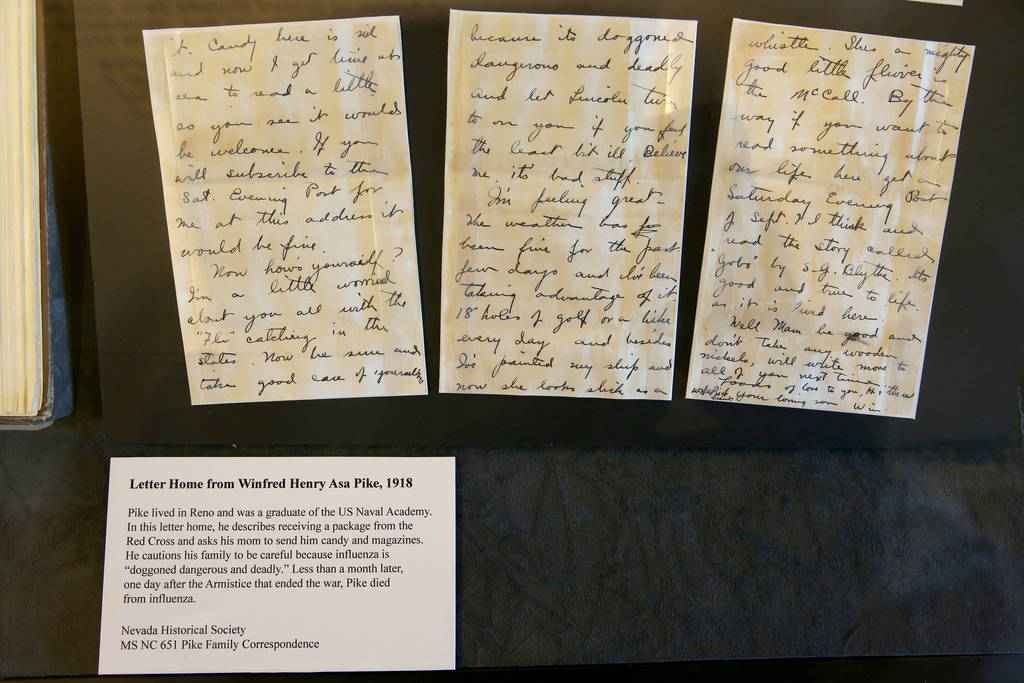 it. Candy here is nil
and now I get time at
sea to read a little
so you see it would
be welcome. If you
will subscribe to the
Sat. Evening Post for
me at this address it
would be fine.
Now how's yourself?
I'm a little worried
about you all with the
"Flu" catching in the
states. Now be sure and
take good care of yourselfs
because its doggoned
dangerous and deadly
and let Lincoln turn
to on you if you feel
the least bit ill. Believe
me, it's bad stuff.
I'm feeling great.
The weather has
been fine for the past
few days and I've been
taking advantage of it.
18 holes of golf or a hike
every day and besides
I've painted my ship and
now she looks slick as a
whistle. She's a mighty
good little flivver -
the McCall. By the
way if you want to
read something about
our life here get a
Saturday Evening Post
of Sept. 7 I think and
read the story called
"Gobs" by S.G. Blythe. Its
good and true to life
as it is lived here.
Well Mam be good and
don't take any wooden
nickels, will write more to
all of you next time.
of love to you,
your loving son Win
Letter Home from Winfred Henry Asa Pike, 1918
Pike lived in Reno and was a graduate of the US Naval Academy.
In this letter home, he describes receiving a package from the
Red Cross and asks his mom to send him candy and magazines.
He cautions his family to be careful because influenza is
“doggoned dangerous and deadly.” Less than a month later,
one day after the Armistice that ended the war, Pike died
from influenza.
Nevada Historical Society
MS NC 651 Pike Family Correspondence